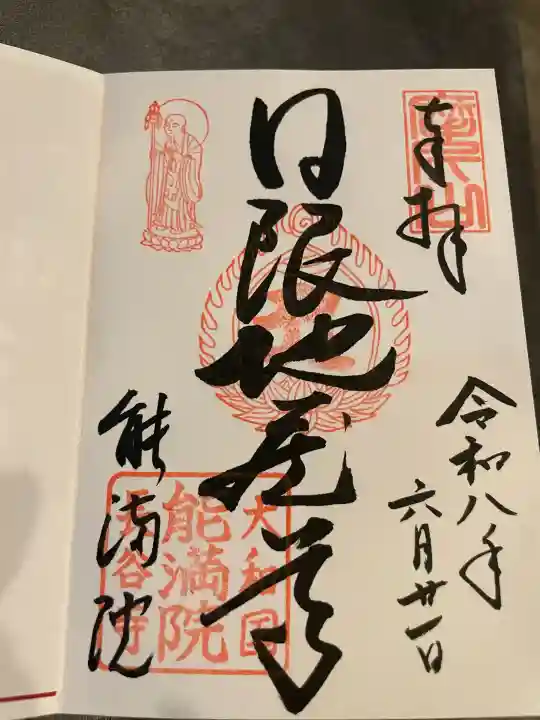 奉拝
令和八年
六月廿一日
日限地蔵尊
能満院
大和国
能満院
長谷寺